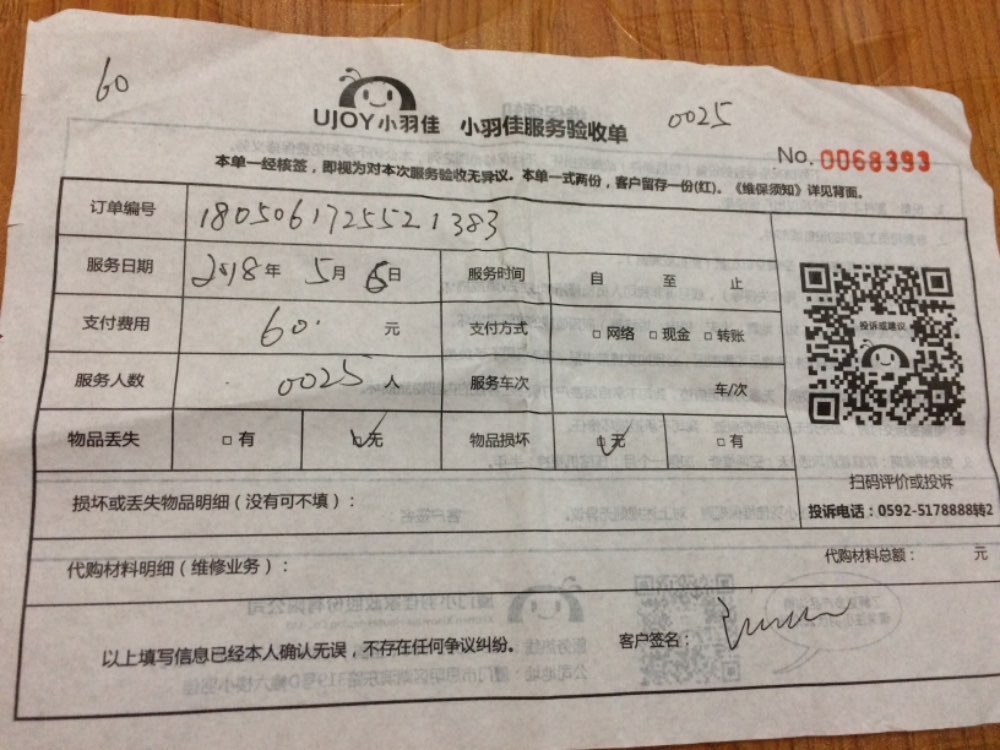 60
UJOY小羽佳 小羽佳服务验收单 0025
No. 0068393
本单一经核签，即视为对本次服务验收无异议。本单一式两份，客户留存一份(红)。《维保须知》详见背面。
订单编号 18050617255521383
服务日期 2018年 5月 6日 服务时间 自 至 止
支付费用 60. 元 支付方式 □ 网络 □ 现金 □ 转账
服务人数 0025 人 服务车次 车/次
物品丢失 □ 有 ☑ 无 物品损坏 ☑ 无 □ 有
投诉或建议
扫码评价或投诉
投诉电话：0592-5178888转2
损坏或丢失物品明细（没有可不填）：
代购材料明细（维修业务）： 代购材料总额： 元
以上填写信息已经本人确认无误，不存在任何争议纠纷。 客户签名：